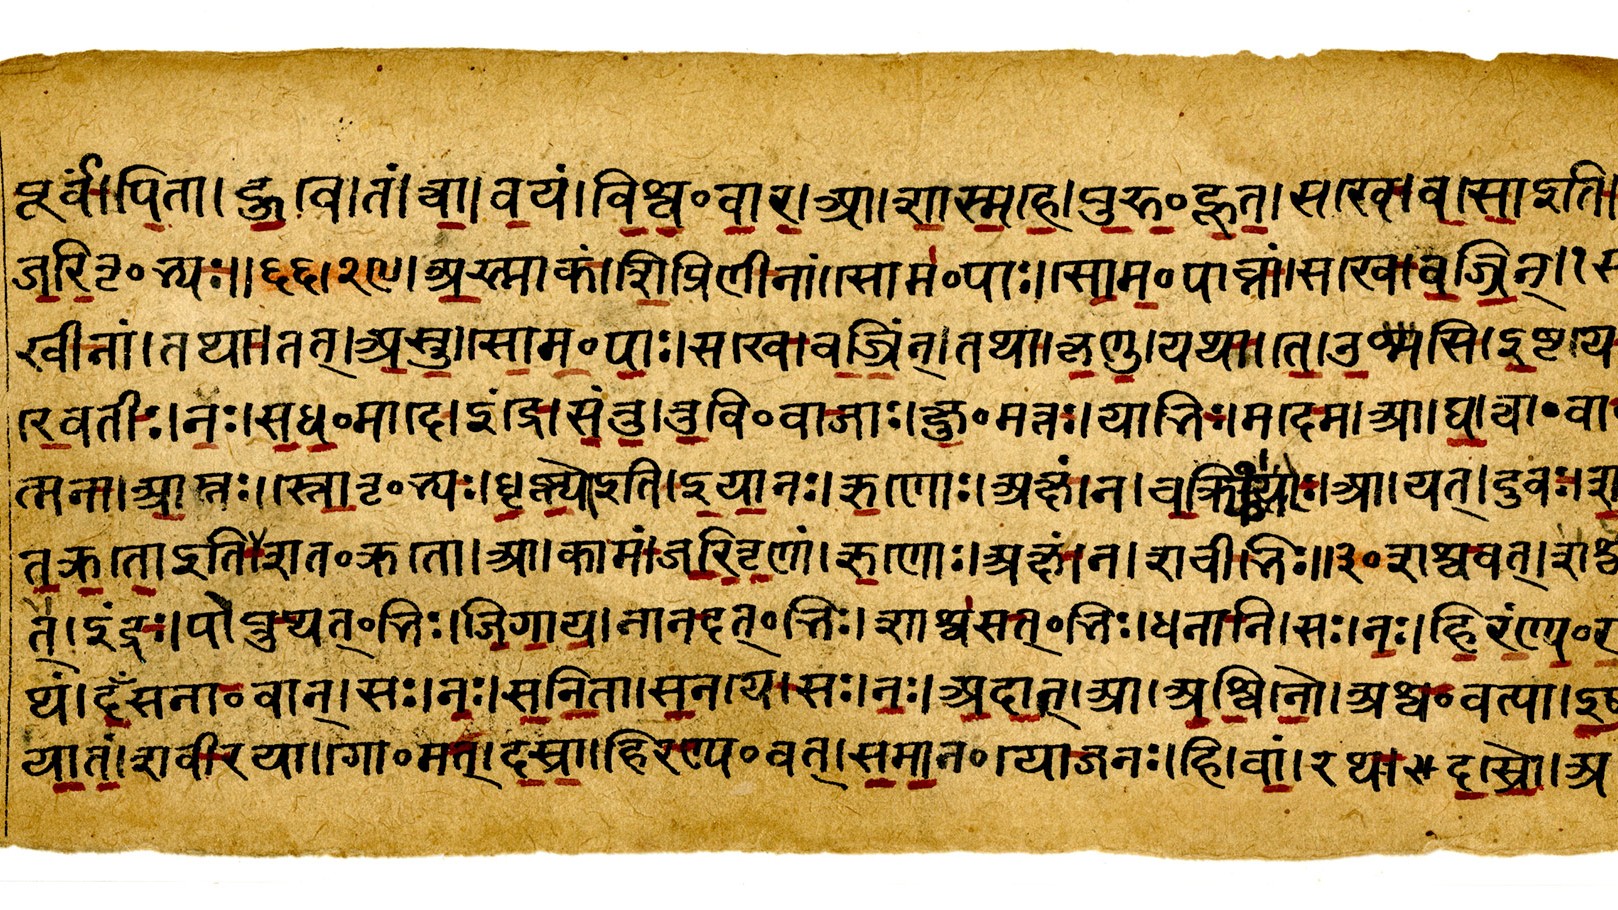 पूर्वं।पिता।हुवे।तं।त्वा।वयं।विश्व॰वार।आ।शास्महे।पुरु॰हूत।सखे।वसो इति।
जरितृ॰भ्यः॥६६।२९।अस्माकं।शिप्रिणीनां।सोम॰पाः।सोम॰पाव्नां।सखे।वज्रिन्।स
खीनां।तथा।तत्।अस्तु।सोम॰पाः।सखे।वज्रिंन्।तथा।कृणु।यथा।ते।उश्मसि।इष्टये
।रेवतीः।नः।सध॰मादे।इंद्रे।संतु।तुवि॰वाजाः।क्षु॰मंतः।याभिः।मदेम।आ।घ।त्वा॰वा
त्मना।आप्तः।स्तोतृ॰भ्यः।धृष्णो इति।इयानः।ऋणोः।अक्षं।न।चक्र्योः।आ।यत्।दुवः।श
तक्रतो इति शत॰क्रतो।आ।कामं।जरितॄणां।ऋणोः।अक्षं।न।शचीभिः॥३॰ शश्वत्।
इंद्रः।पोप्रुथत्॰भिः।जिगाय।नानदत्॰भिः।शाश्वसत्॰भिः।धनानि।सः।नः।हिरण्य॰र
थं।दंसना॰वान्।सः।नः।सनिता।सनये।सः।नः।अदात्।आ।अश्विनौ।अश्व॰वत्या।
यातं।शवीरया।गो॰मत्।दस्रा।हिरण्य॰वत्।समान॰योजनः।हि।वां।रथः।दस्रौ।अ